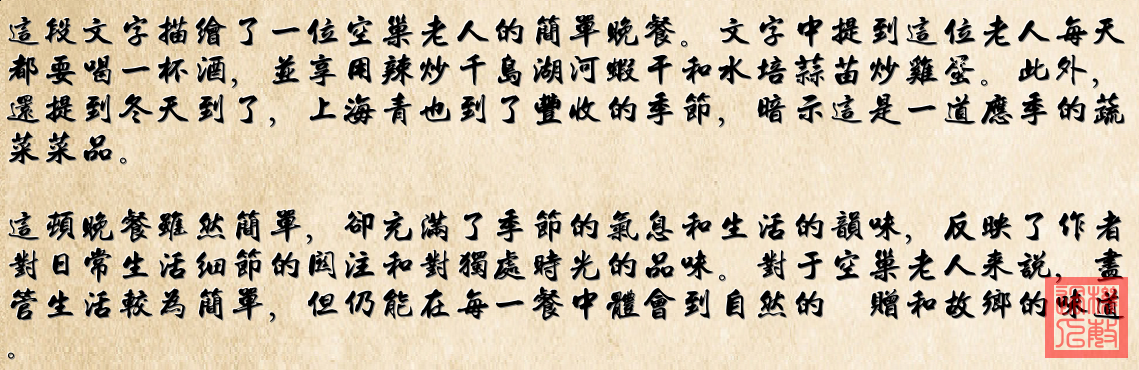 這段文字描繪了一位空巢老人的簡單晚餐。文字中提到這位老人每天
都要喝一杯酒，並享用辣炒千島湖河蝦干和水培蒜苗炒雞蛋。此外，
還提到冬天到了，上海青也到了豐收的季節，暗示這是一道應季的蔬
菜菜品。
這頓晚餐雖然簡單，卻充滿了季節的氣息和生活的韻味，反映了作者
對日常生活細節的関注和對獨處時光的品味。對于空巢老人来說，盡
管生活較為簡單，但仍能在每一餐中體會到自然的　贈和故鄉的味道
。